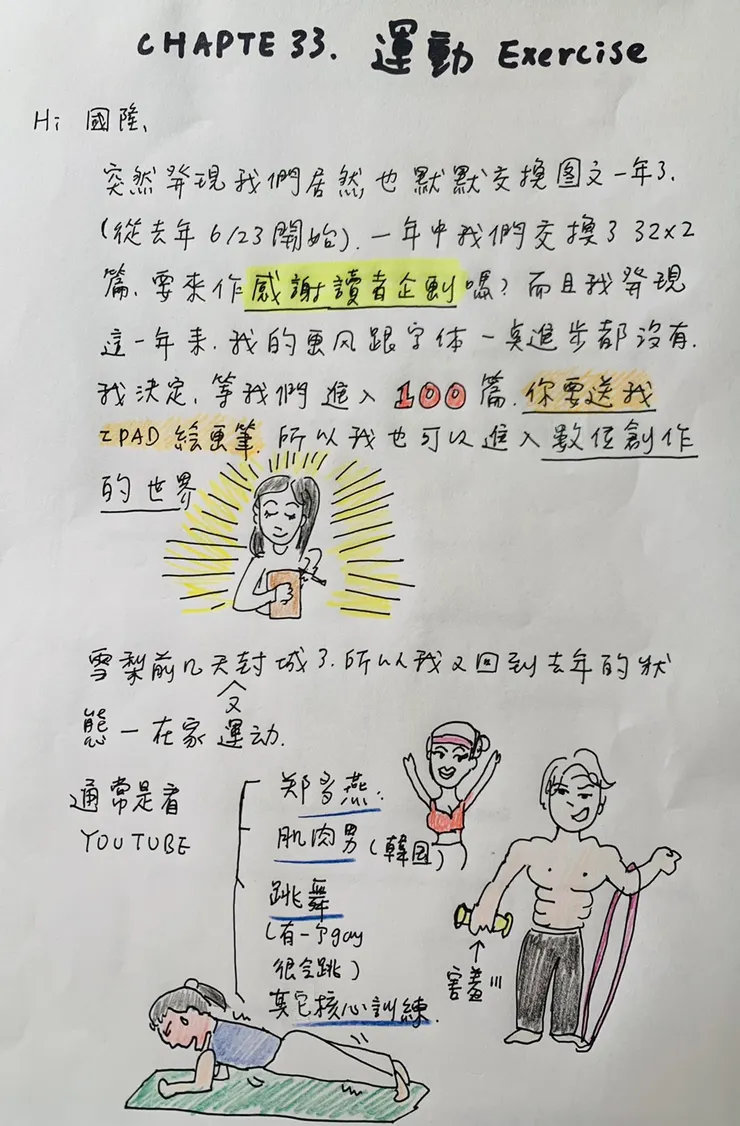 CHAPTE 33. 運動 Exercise
Hi 國隆、
突然發現我們居然也默默交換图文一年了.
(從去年 6/23 開始). 一年中我們交換了 32x2
篇、要來作感謝讀者企劃嗎? 而且我發現
這一年来. 我的画风跟字体一点進步都沒有.
我決定、等我們進入 100 篇. 你要送我
IPAD 绘画筆. 所以我也可以進入數位創作
的世界
雪梨前几天封城了. 所以我又回到去年的狀
又
態 — 在家運动.
通常是看
YOUTUBE
郑多燕.
肌肉男 (韓国)
跳舞
(有一个gay
很会跳)
其它核心訓練.
害羞